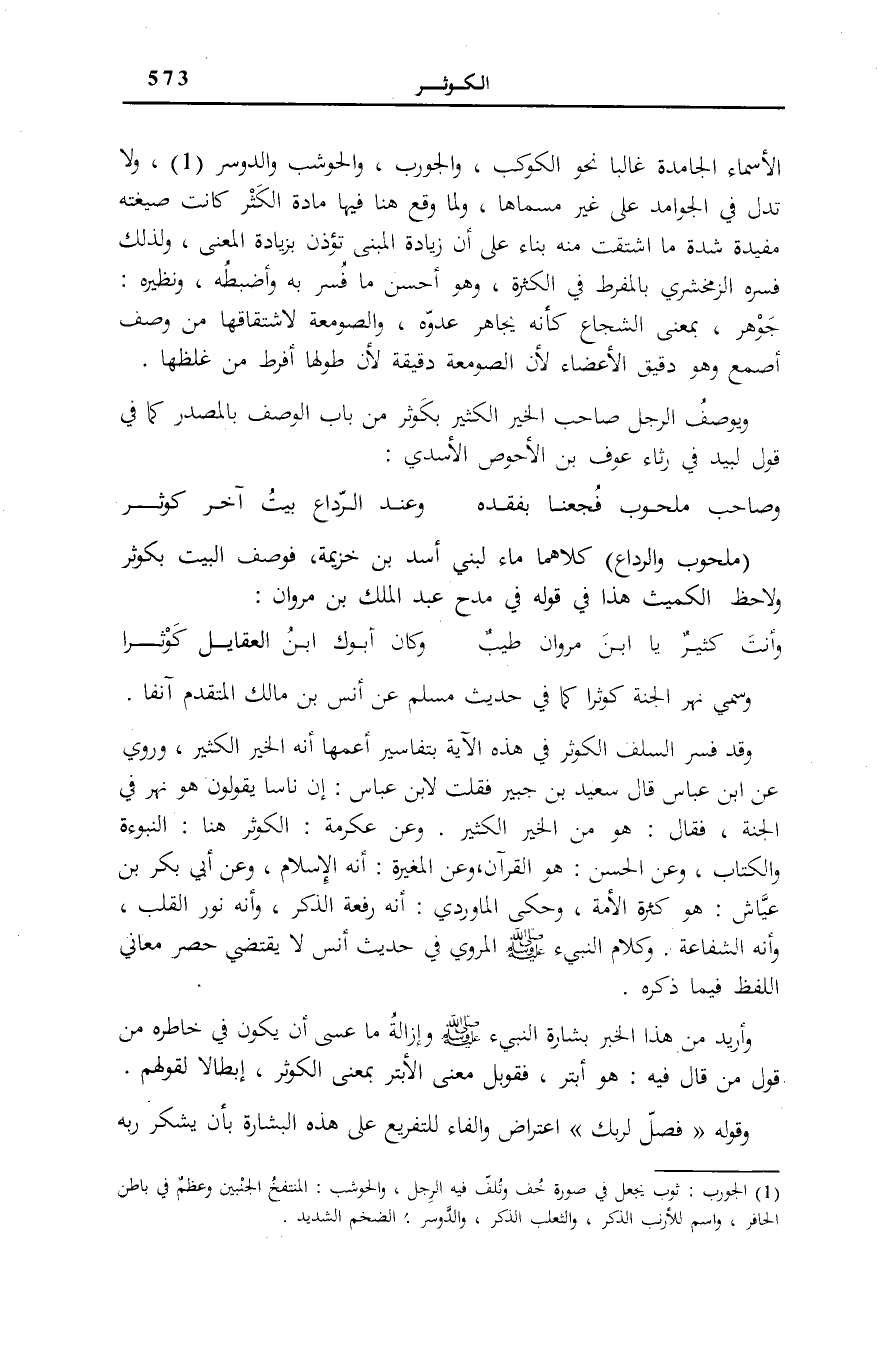 573 الكـوثـــر
الأسماء الجامدة غالبا نحو الكوكب ، والجورب ، والحوشب والدوسر (1) ، ولا
تدل في الجوامد على غير مسماها ، ولما وقع هنا فيها مادة الكَثْر كانت صيغته
مفيدة شدة ما اشتقت منه بناء على أن زيادة المبنى تؤذن بزيادة المعنى ، ولذلك
فسره الزمخشري بالمفرط في الكثرة ، وهو أحسن ما فُسر به وأضبطُه ، ونظيره :
جَوْهر ، بمعنى الشجاع كأنه يجاهر عدوّه ، والصومعة لاشتقاقها من وصف
أصمع وهو دقيق الأعضاء لأن الصومعة دقيقة لأن طولها أفرط من غلظها .
ويوصفُ الرجل صاحب الخير الكثير بكَوثر من باب الوصف بالمصدر كما في
قول لبيد في رثاء عوف بن الأحوص الأسدي :
وصاحب ملحـوب فُجعنـا بفقـده وعنـد الـرّداع بيتُ آخـر كوثــــر
(ملحوب والرداع) كلاهما ماء لبني أسد بن خزيمة، فوصف البيت بكوثر
ولاحظ الكميث هذا في قوله في مدح عبد الملك بن مروان :
وأنتَ كثيـرٌ يا ابـنَ مروان طيبٌ وكان أبـوك ابـنُ العقايـل كَوْثـــرا
وسمي نهر الجنة كوثرا كما في حديث مسلم عن أنس بن مالك المتقدم آنفا .
وقد فسر السلف الكوثر في هذه الآية بتفاسير أعمها أنه الخير الكثير ، وروي
عن ابن عباس قال سعيد بن جبير فقلت لابن عباس : إن ناسا يقولون هو نهر في
الجنة ، فقال : هو من الخير الكثير . وعن عكرمة : الكوثر هنا : النبوءة
والكتاب ، وعن الحسن : هو القرآن،وعن المغيرة : أنه الإسلام ، وعن أبي بكر بن
عيَّاش : هو كثرة الأمة ، وحكى الماوردي : أنه رفعة الذكر ، وأنه نور القلب ،
وأنه الشفاعة . وكلام النبيء ﷺ المروي في حديث أنس لا يقتضي حصر معاني
اللفظ فيما ذكره .
وأريد من هذا الخبر بشارة النبيء ﷺ وإزالةُ ما عسى أن يكون في خاطره من
قول من قال فيه : هو أبتر ، فقوبل معنى الأبتر بمعنى الكوثر ، إبطالا لقولهم .
وقوله « فصلّ لربك » اعتراض والفاء للتفريع على هذه البشارة بأن يشكر ربه
(1) الجورب : ثوب يجعل في صورة خُف وتُلفّ فيه الرِجل ، والحوشب : المنتفخُ الجنْبين وعظمٌ في باطن
الحافر ، واسم للأرنب الذكر ، والثعلب الذكر ، والدَّوسر : الضخم الشديد .